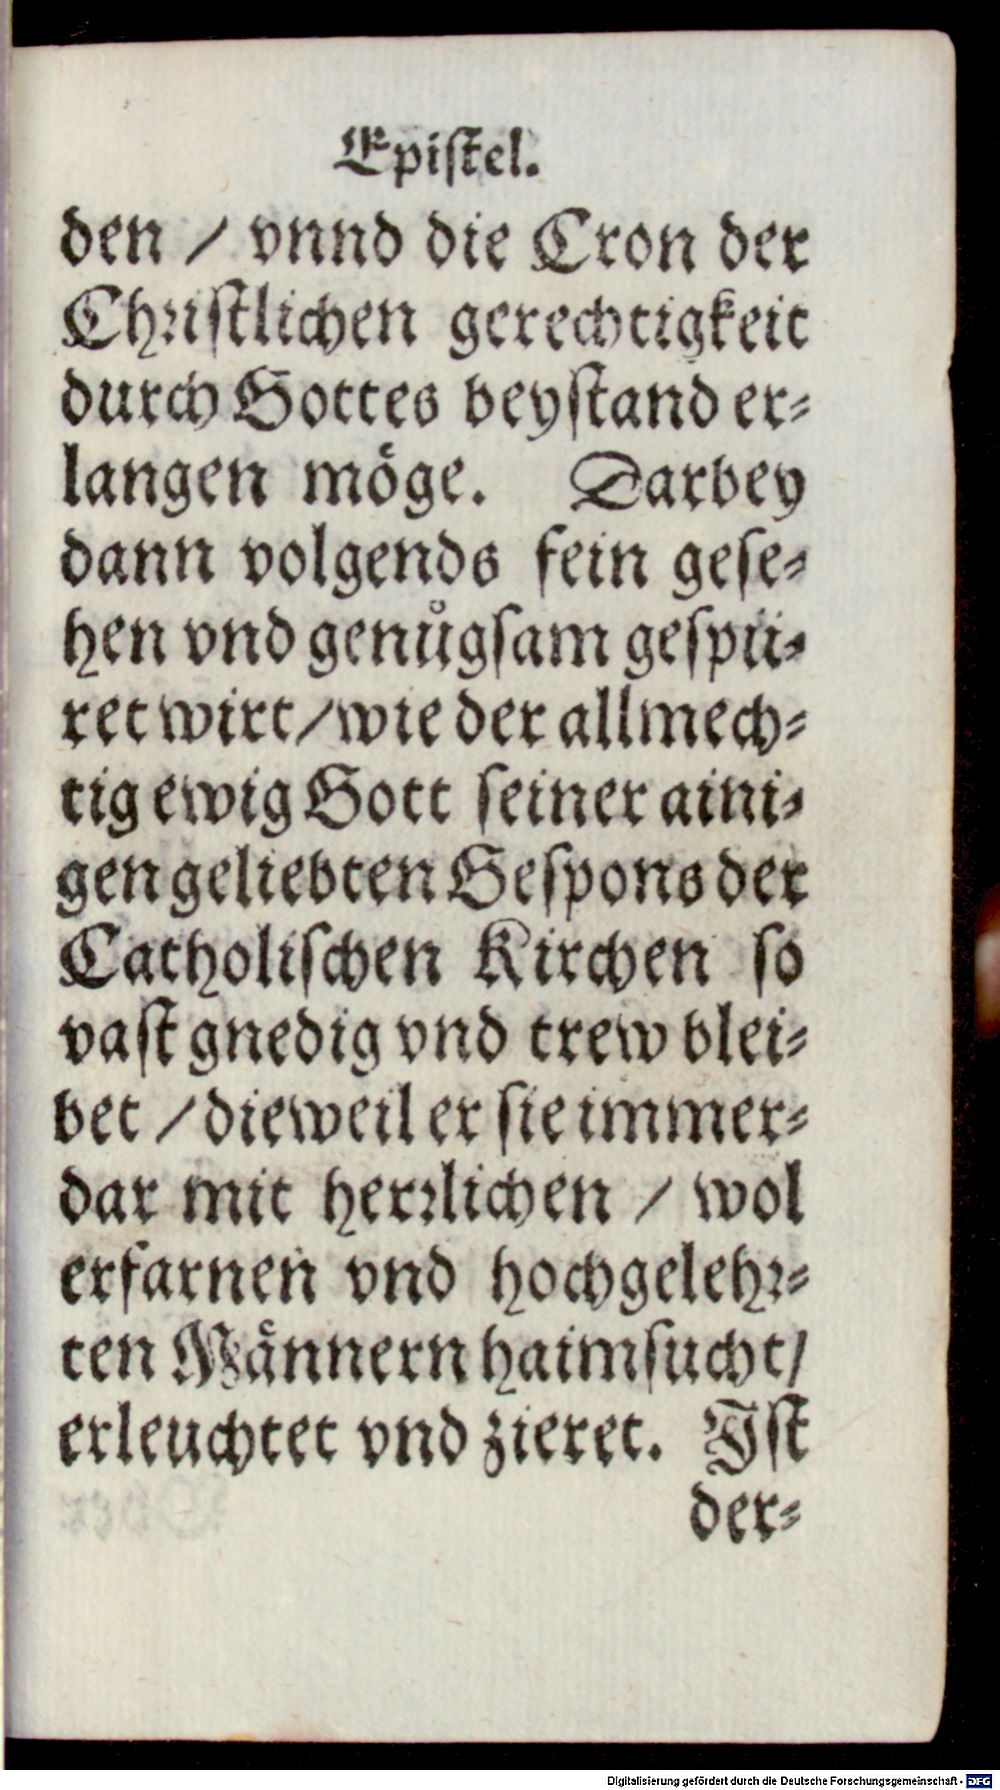 Epiſtel.
den / vnnd die Cron der
Chꝛiſtlichen gerechtigkeit
durch Gottes beyſtand er⸗
langen moͤge. Darbey
dann volgends fein geſe⸗
hen vnd genůgſam geſpü⸗
ret wirt/wie der allmech⸗
tig ewig Gott ſeiner aini⸗
gen geliebten Geſpons der
Catholiſchen Kirchen ſo
vaſt gnedig vnd trew blei⸗
bet / dieweil er ſie immer⸗
dar mit herꝛlichen / wol
erfarnen vnd hochgelehꝛ⸗
ten Maͤnnern haimſucht/
erleuchtet vnd zieret. Iſt
der⸗
Digitalisierung gefördert durch die Deutsche Forschungsgemeinschaft - DFG